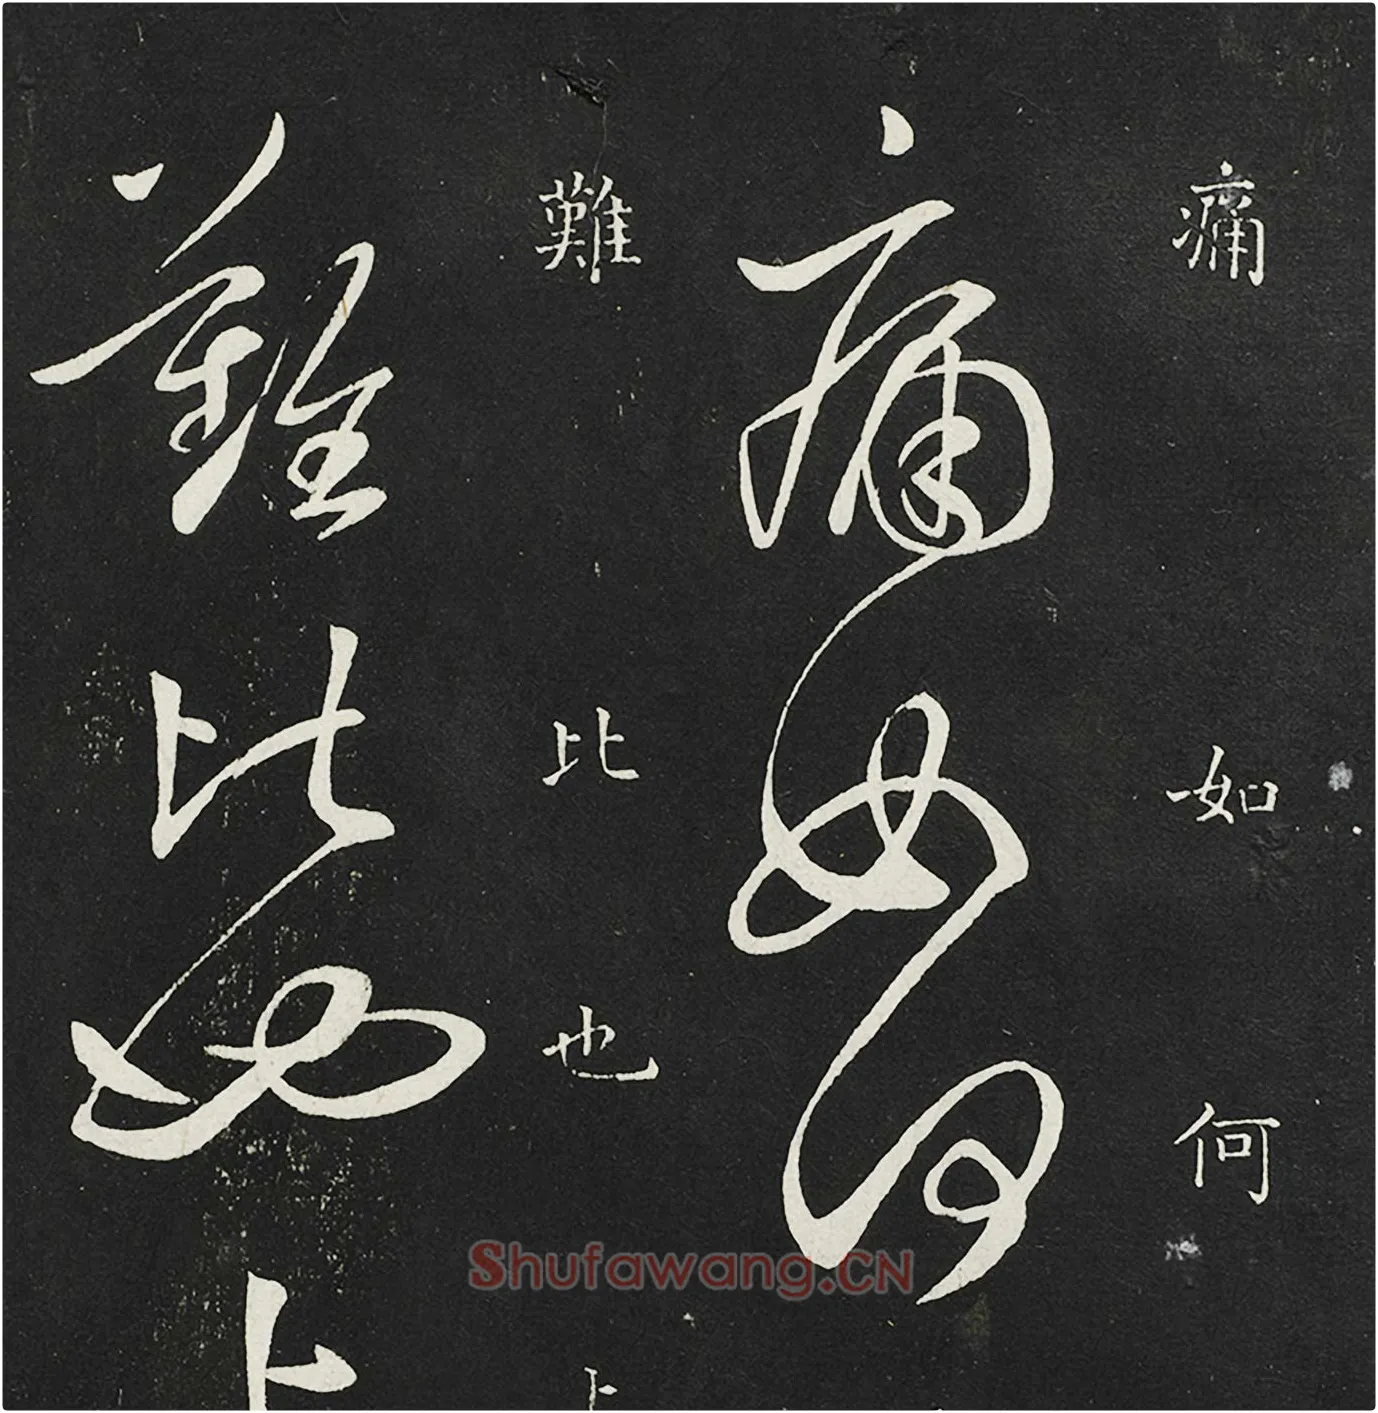 痛如何
痛如何
難比也
難比也
Shufawang.CN